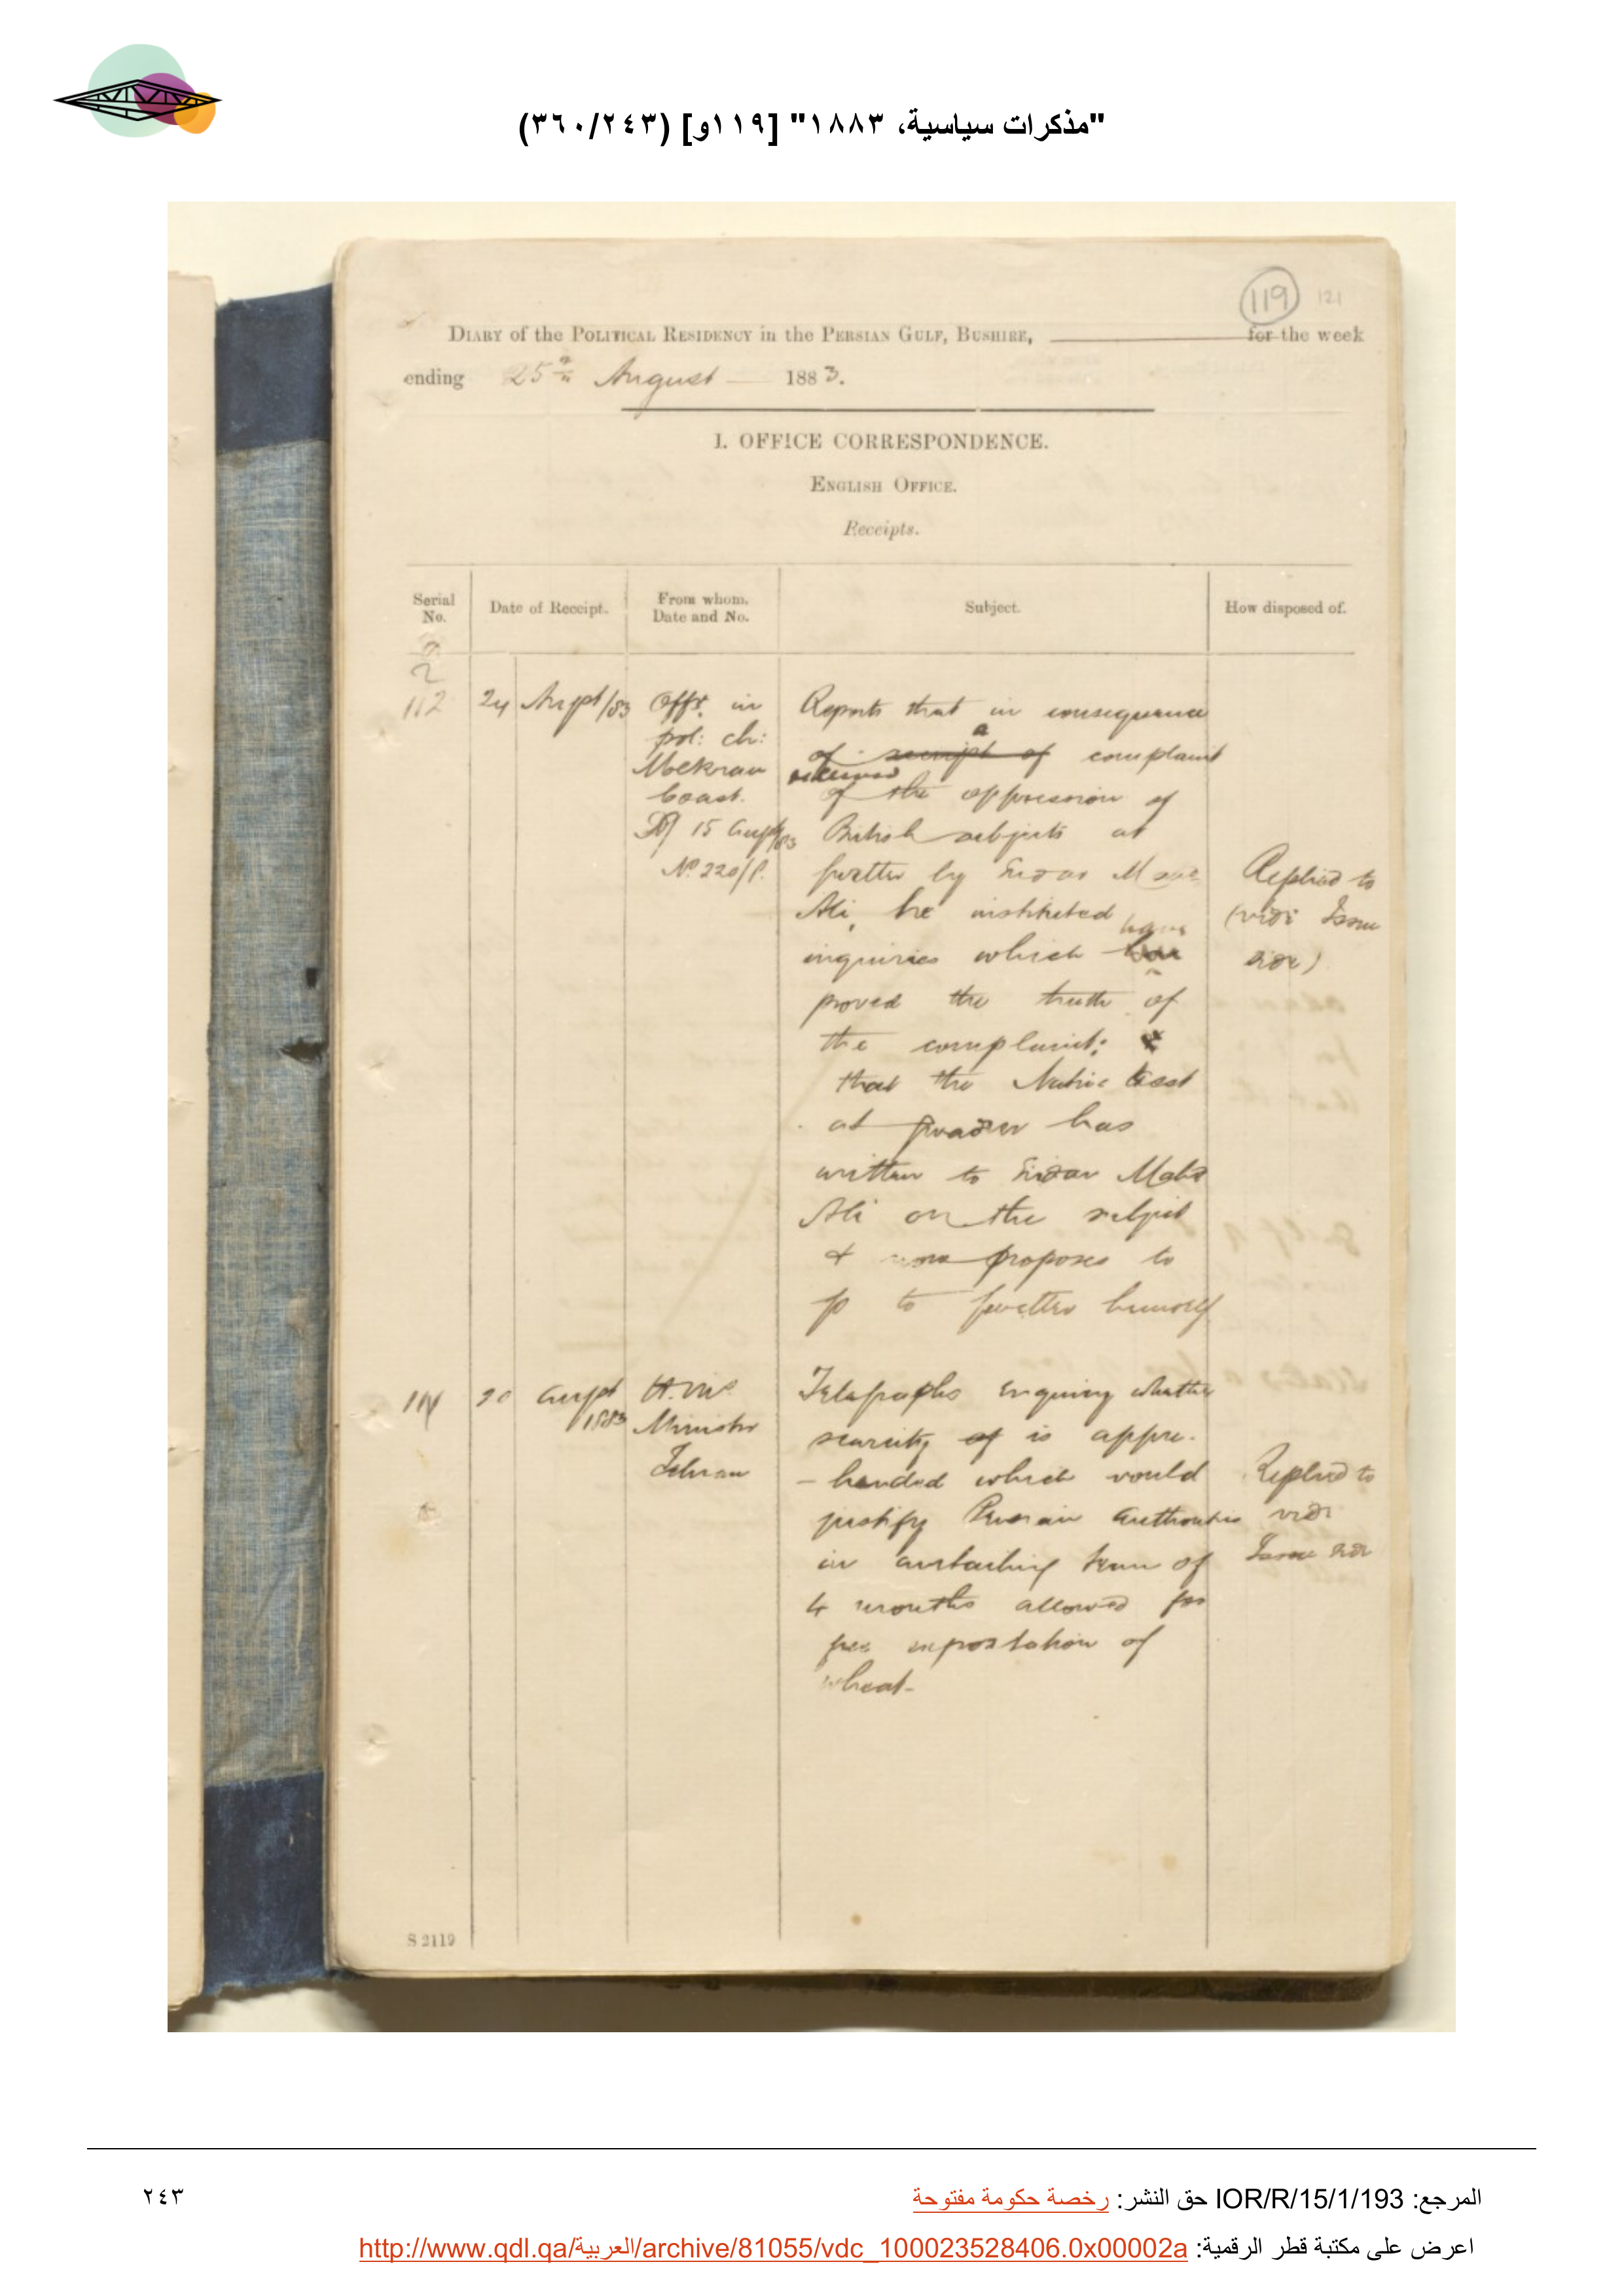 "مذكرات سياسية، ١٨٨٣" [١١٩و] (٣٦٠/٢٤٣)
119 121
DIARY of the POLITICAL RESIDENCY in the PERSIAN GULF, BUSHIRE, for the week
ending 25th August 1883.
I. OFFICE CORRESPONDENCE.
ENGLISH OFFICE.
Receipts.
Serial No. Date of Receipt. From whom. Date and No. Subject. How disposed of.
112 24 Augt/83
Offr. in
pol: ch:
Mekran
Coast.
15 Augt/83
No. 220/P.
Reports that in consequence
of a receipt of complaint
received of the oppression of
British subjects at
by Sirdar
Ali, he instituted
inquiries which have
proved the truth of
the complaint; &
that the Native Asst
at Gwadur has
written to Sirdar Mahd
Ali on the subject
& now proposes to
go to himself
Replied to
(vide Issue
side)
20 Augt 1883
H. M's
Minister
Tehran
Telegraphs enquiring whether
scarcity of is appre-
-hended which would
justify Persian authorities
in curtailing term of
4 months allowed for
free importation of
wheat-
Replied to
vide
Issue side
S 2119
المرجع: IOR/R/15/1/193 حق النشر: رخصة حكومة مفتوحة
٢٤٣
اعرض على مكتبة قطر الرقمية: http://www.qdl.qa/العربية/archive/81055/vdc_100023528406.0x00002a